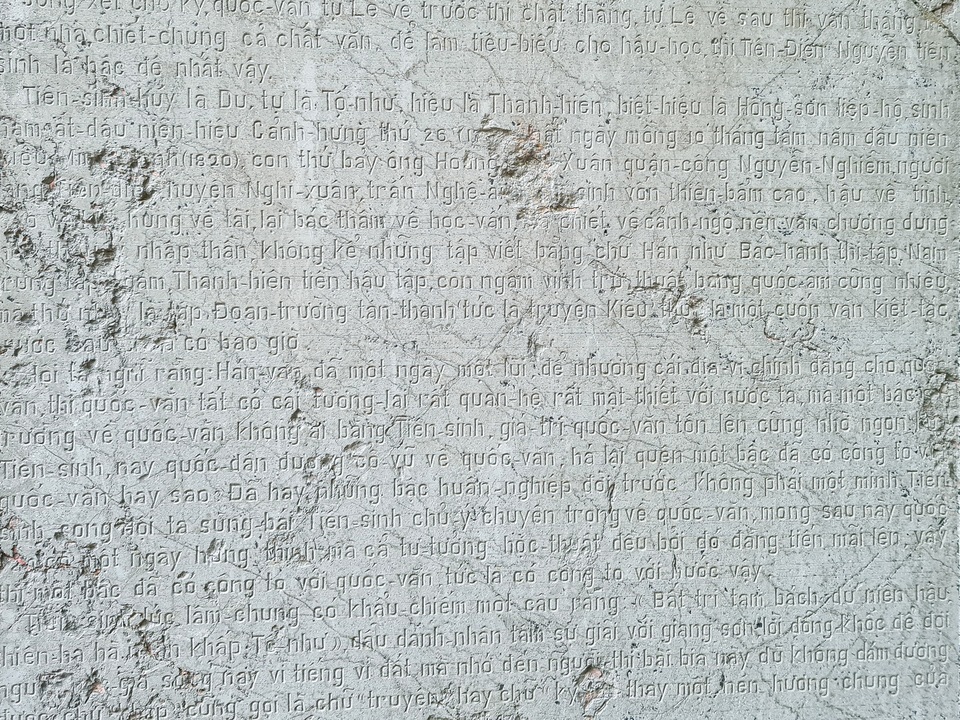 chữ kỳ, quốc-văn từ Lê về trước thì chất thắng, từ Lê về sau thì văn thắng
một nhà chiết-chung cả chất văn, để làm tiêu-biểu cho hậu-học, thì Tiên-Điền Nguyễn tiên
sinh là bậc đệ nhất vậy.
Tiên-sinh húy là Du, tự là Tố-như, hiệu là Thanh-hiên, biệt-hiệu là Hồng-sơn liệp-hộ, sinh
năm ất-dậu niên-hiệu Cảnh-hưng thứ 26 ngày mồng 10 tháng tám năm đầu niên
(1820), con thứ bảy ông Xuân quận-công Nguyễn-Nghiễm, người
huyện Nghi-xuân, trấn Nghệ-a sinh vốn thiên-bẩm cao, hậu về tình,
hùng về tài, lại bác thâm về học-vấn, chiết về cảnh-ngộ, nên văn chương dụng
nhập thần, không kể những tập viết bằng chữ Hán như Bắc-hành thi-tập, Nam
trung Thanh-hiên tiền hậu tập, còn ngâm vịnh trứ thuật bằng quốc-âm cũng nhiều,
mà thứ nhất là tập Đoạn-trường tân-thanh tức là truyện Kiều, thực là một cuốn văn kiệt-tác,
có bao giờ.
Tôi ta nghĩ rằng: Hán-văn đã một ngày một lui, để nhường cái địa-vị chính đáng cho quốc
văn, thì quốc-văn tất có cái tương-lai rất quan-hệ, rất mật-thiết với nước ta, mà một bậc
trường về quốc-văn không ai bằng Tiên-sinh, giá-trị quốc-văn tôn lên cũng nhờ ngọn
Tiên-sinh, nay quốc-dân đương cổ-vũ về quốc-văn, há lại quên một bậc đã có công to với
quốc-văn hay sao? Đã hay những bậc huân-nghiệp đời trước không phải một mình Tiên
sinh, song đôi ta sùng-bái Tiên-sinh chú-ý chuyên trọng về quốc-văn, mong sau này quốc
có một ngày hùng thịnh mà cả tư-tưởng học-thuật đều bởi đó đăng tiến mãi lên, vậy
thì một bậc đã có công to với quốc-văn tức là có công to với nước vậy.
sinh lúc lâm-chung có khẩu-chiếm một câu rằng: « Bất tri tam bách dư niên hậu
thiên-hạ hà nhân khấp Tố-như », dẫu danh nhân tâm sự giãi với giang sơn, lời đồng khốc để đời
gia, sông này vì tiếng vì đất mà nhớ đến người thì bài bia này dù không dám đương
cũng gọi là chữ "truyện" hay chữ "ký" thay một nén hương chung của